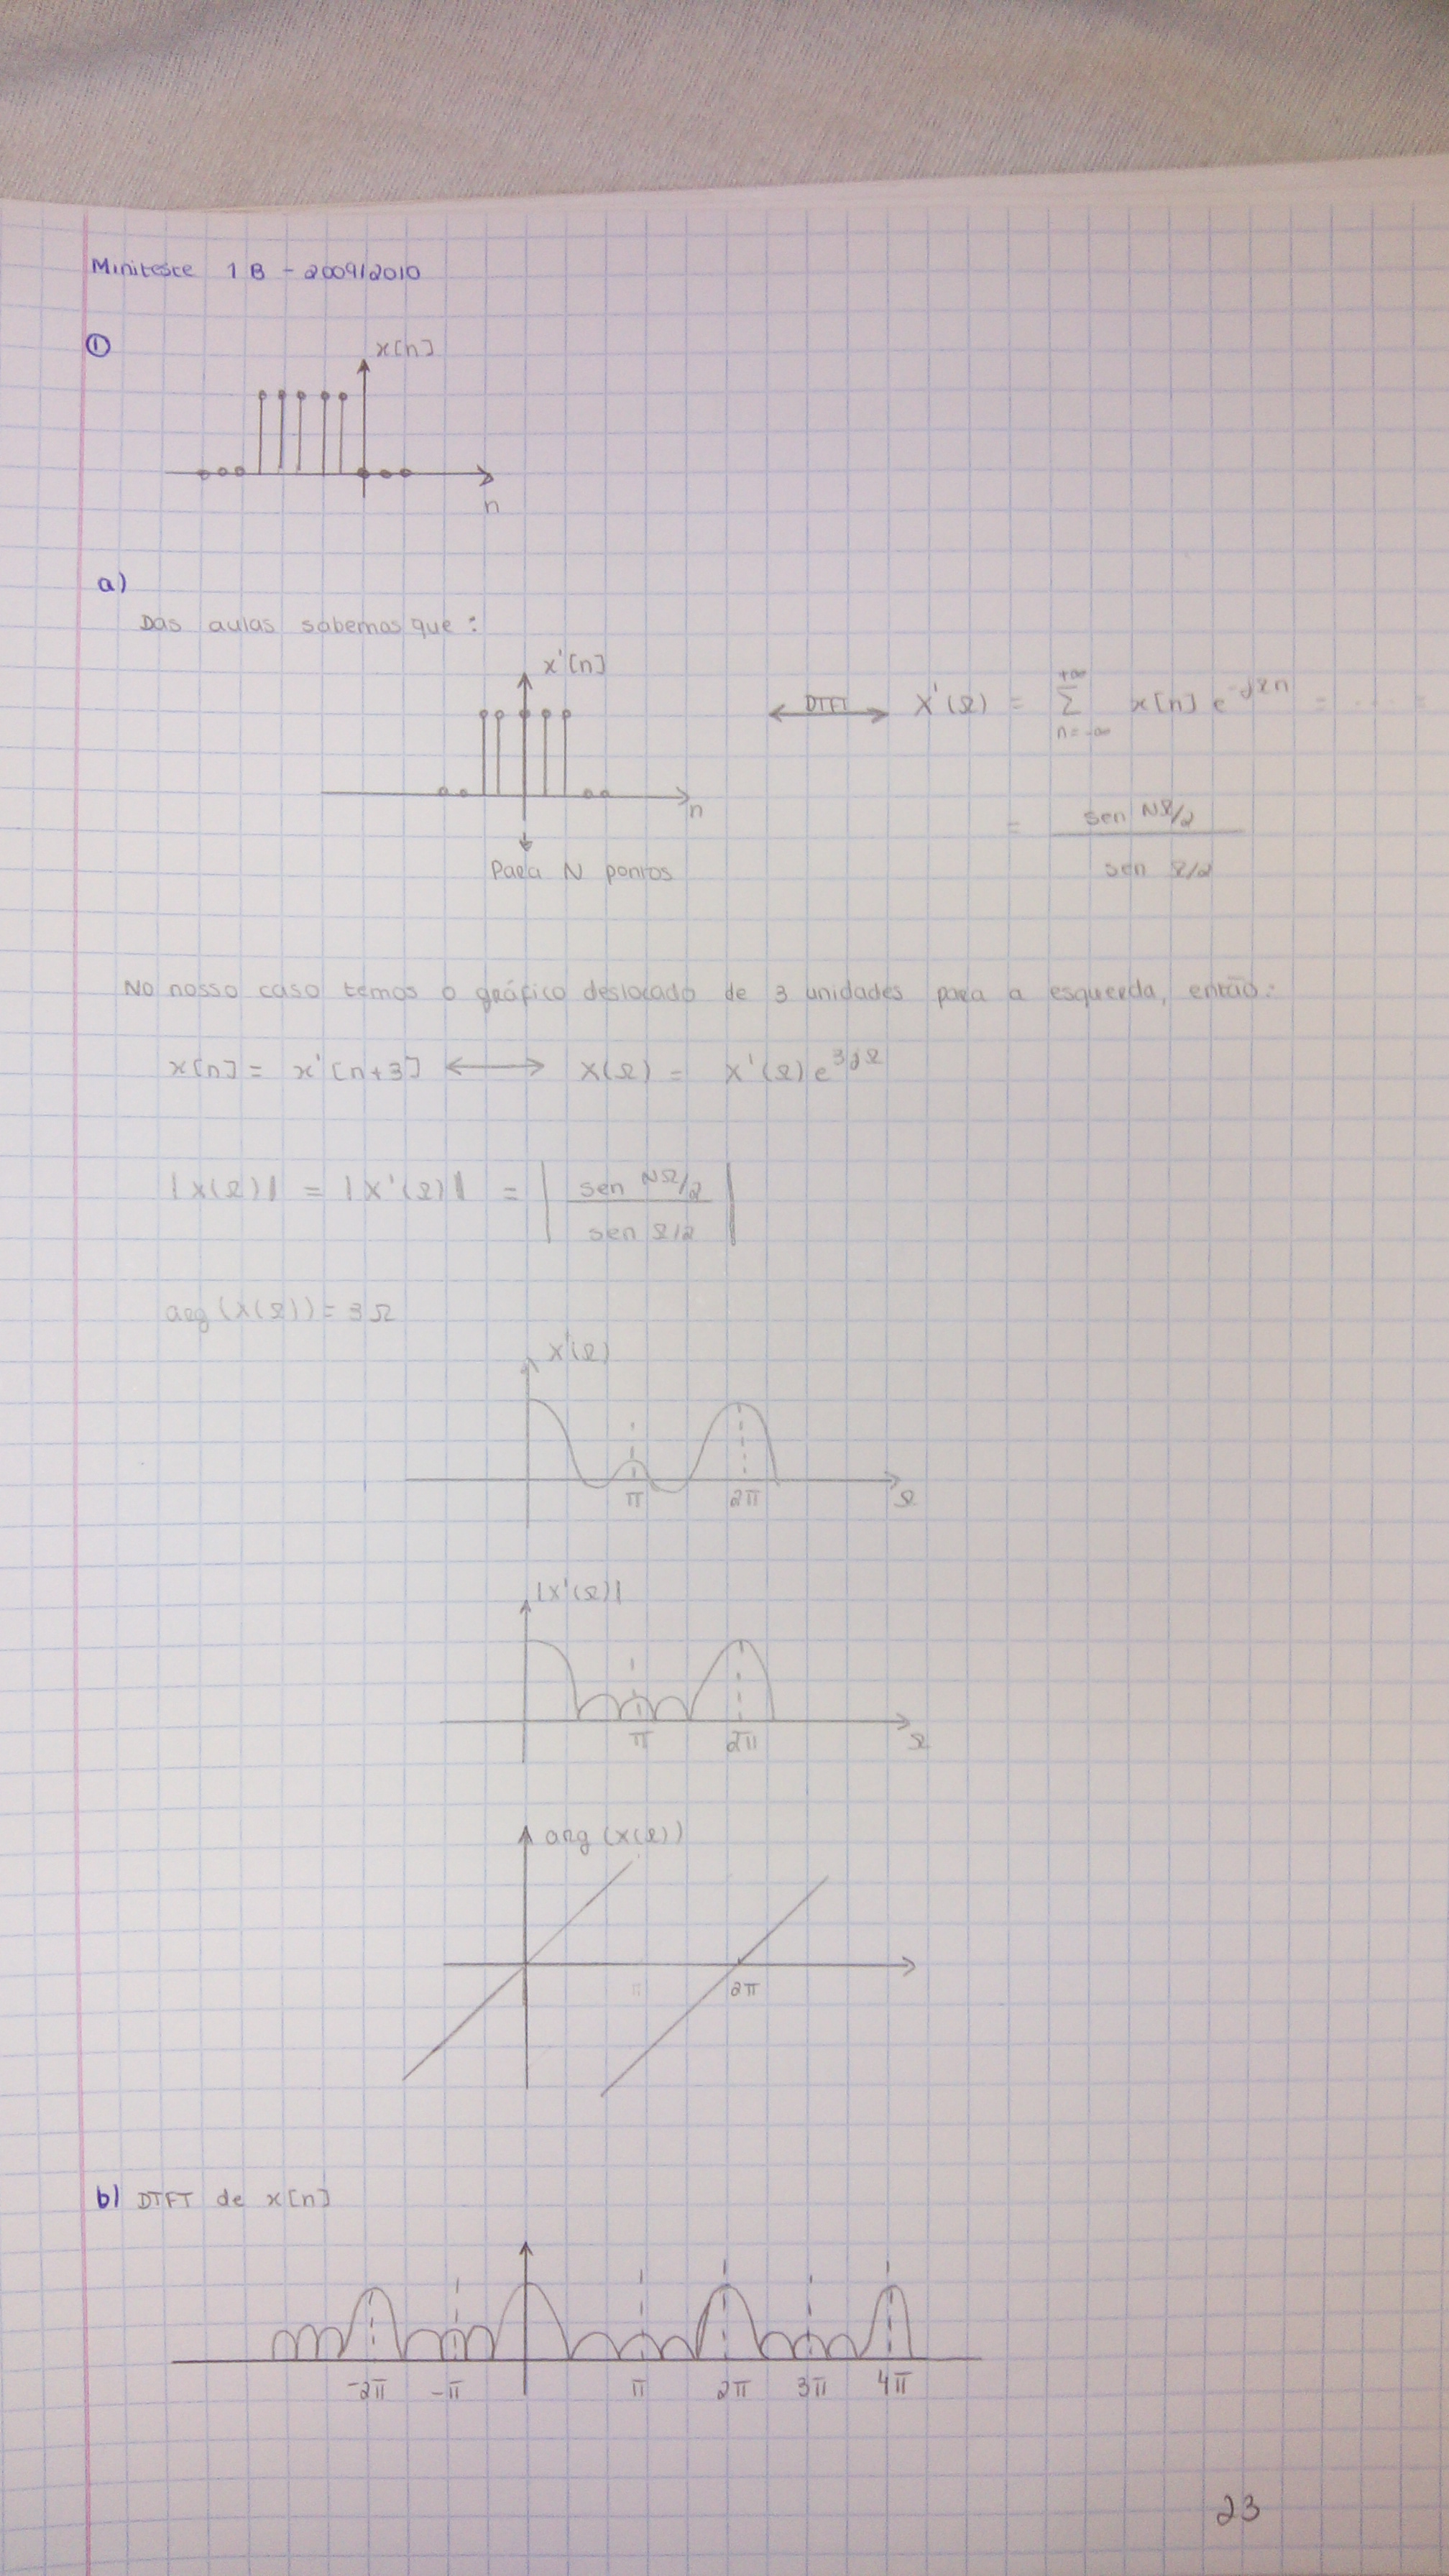 Miniteste 1B - 2009/2010
①
x[n]
n
a)
Das aulas sabemos que:
x'[n]
n
Para N pontos
DTFT X'(Ω) = +∞ Σ n=-∞ x[n] e^-jΩn = ....
= sen NΩ/2
sen Ω/2
No nosso caso temos o gráfico deslocado de 3 unidades para a esquerda, então:
x[n] = x'[n+3] ⟷ X(Ω) = X'(Ω)e^3jΩ
|X(Ω)| = |X'(Ω)| = | sen NΩ/2
sen Ω/2 |
arg(X(Ω)) = 3Ω
X'(Ω)
π 2π Ω
|X'(Ω)|
π 2π Ω
arg(X(Ω))
π 2π
b) DTFT de x[n]
-2π -π π 2π 3π 4π
23